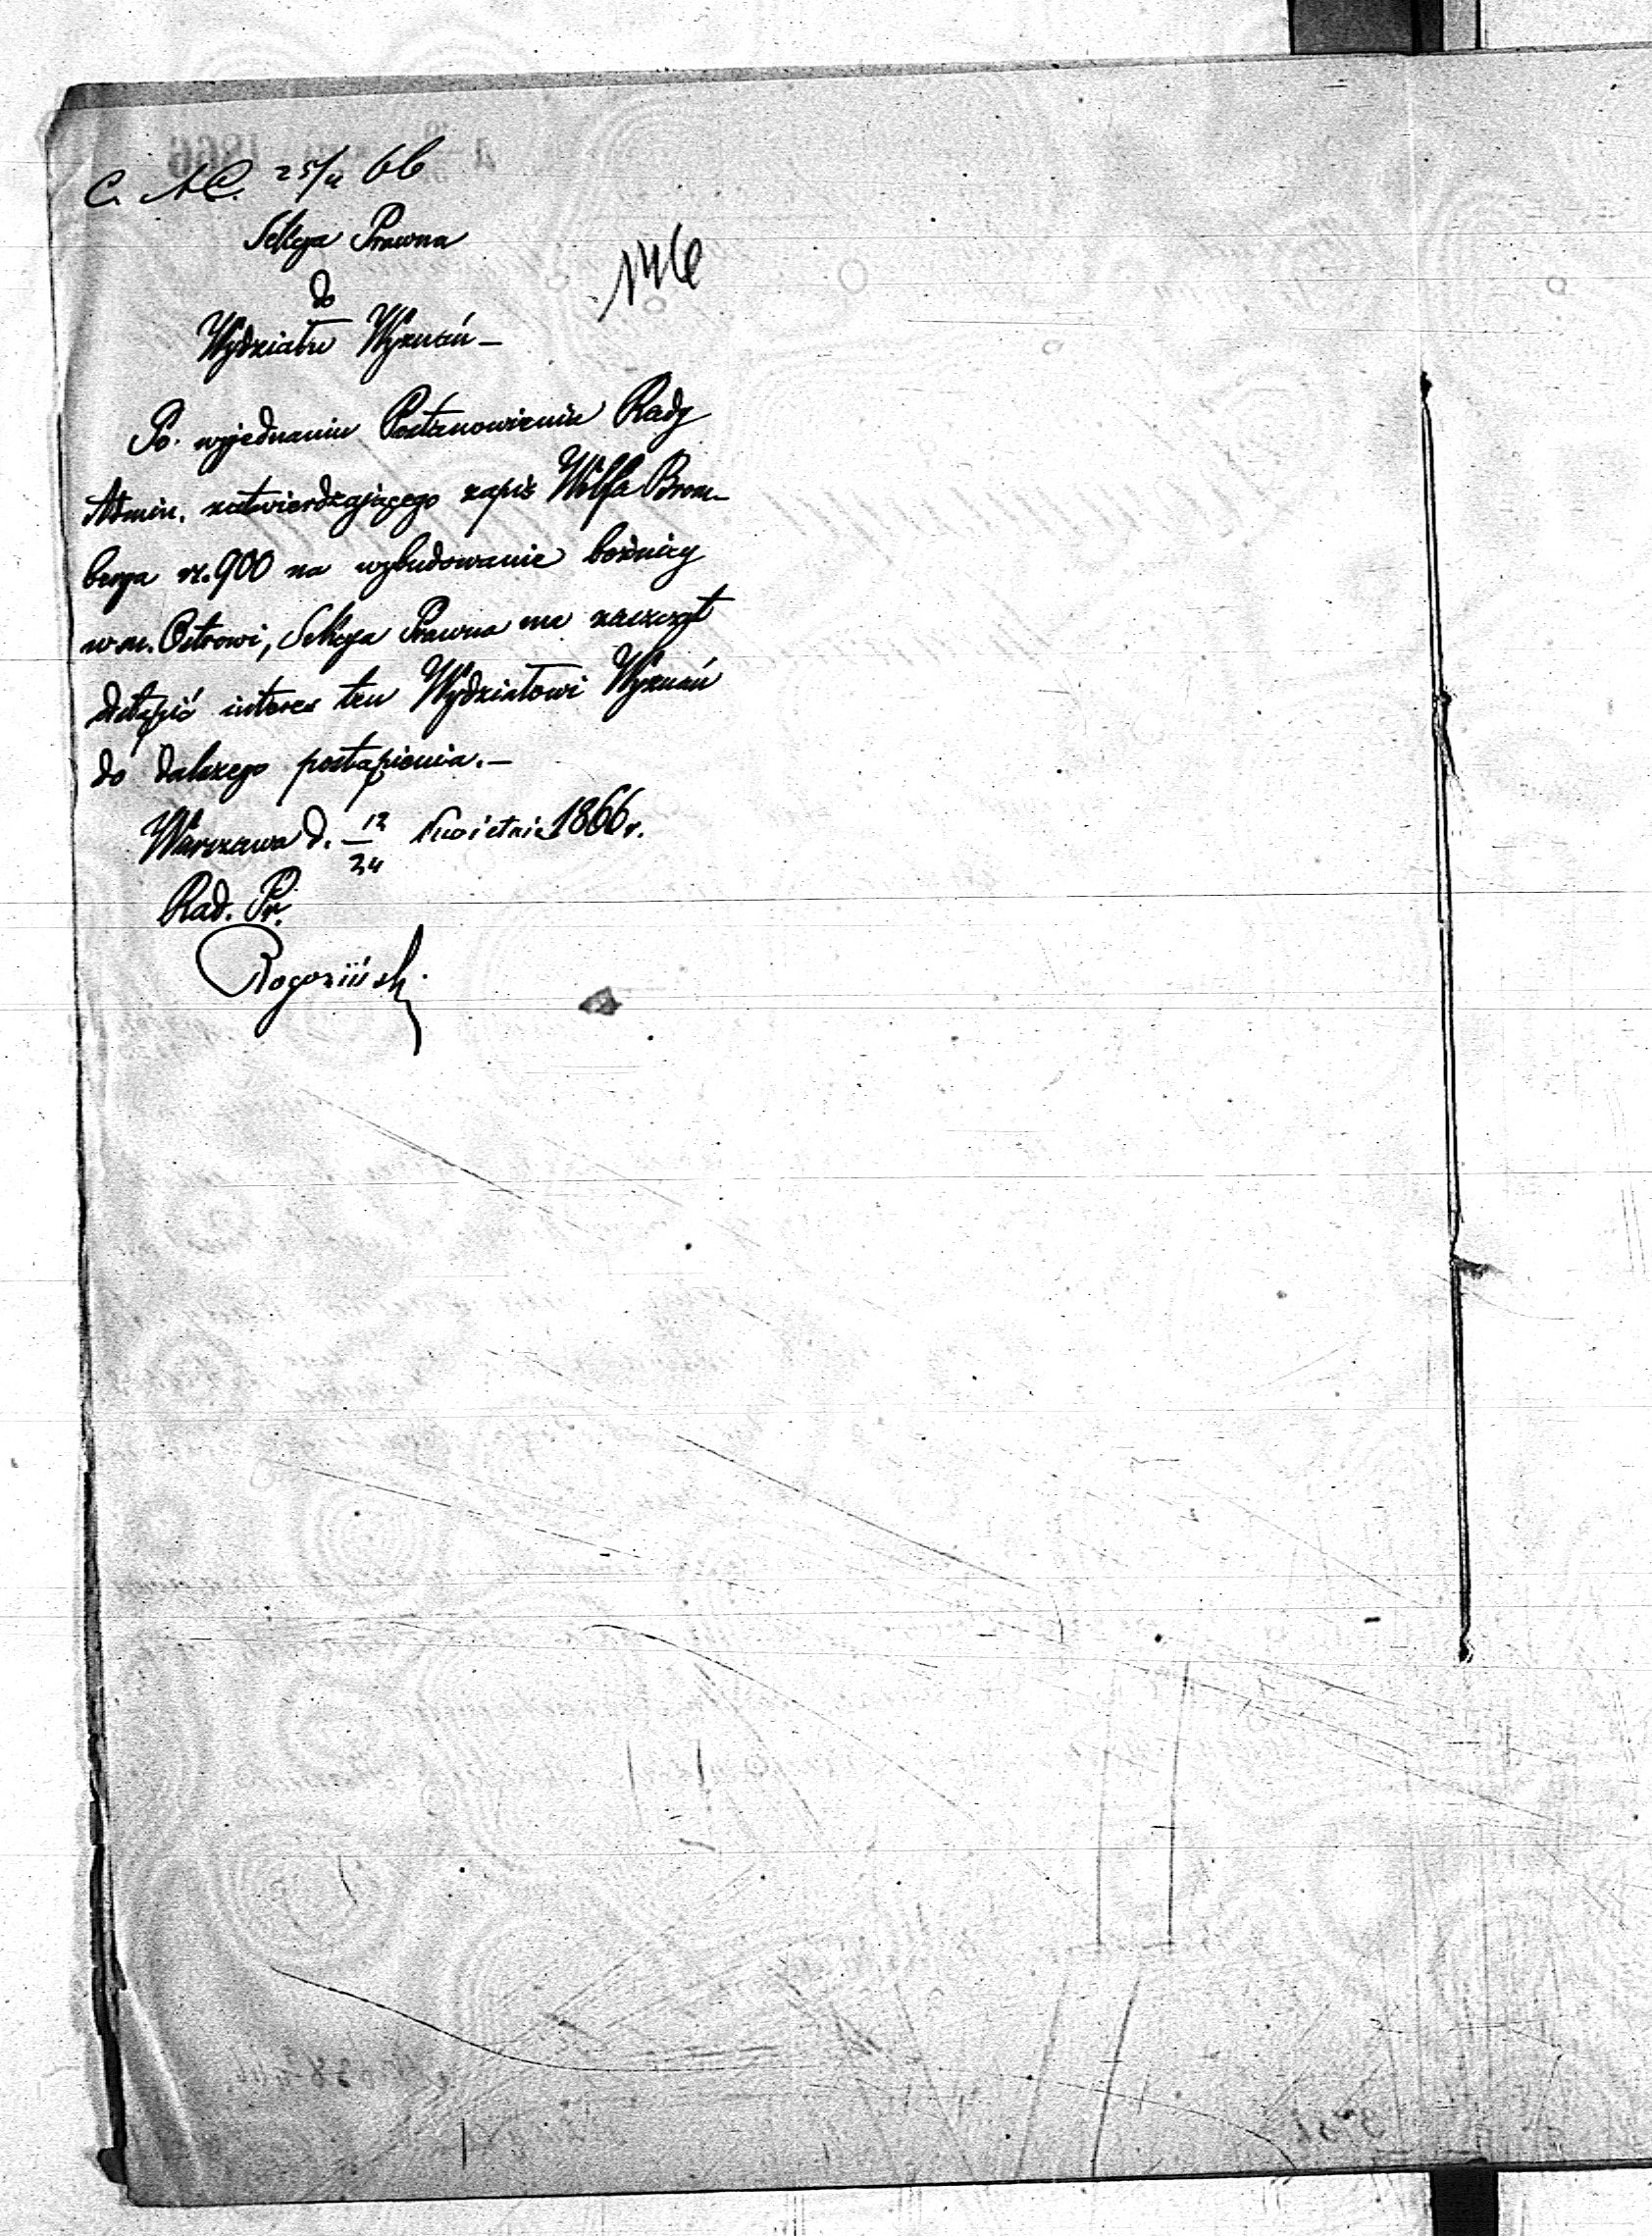 25/4 66
146
Sekcya Prawna
do
Wydziału Wyznań –
Po wyjednaniu Postanowienia Rady
Admin. zatwierdzającego zapis Wolfa Brom-
berga rs. 900 na wybudowanie bożnicy
w m. Ostrowi, Sekcya Prawna ma zaszczyt
interes ten Wydziałowi Wyznań
do dalszego postąpienia. –
Warszawa d. 12/24 Kwietnia 1866 r.
Rad. Pr.
Rogoziński